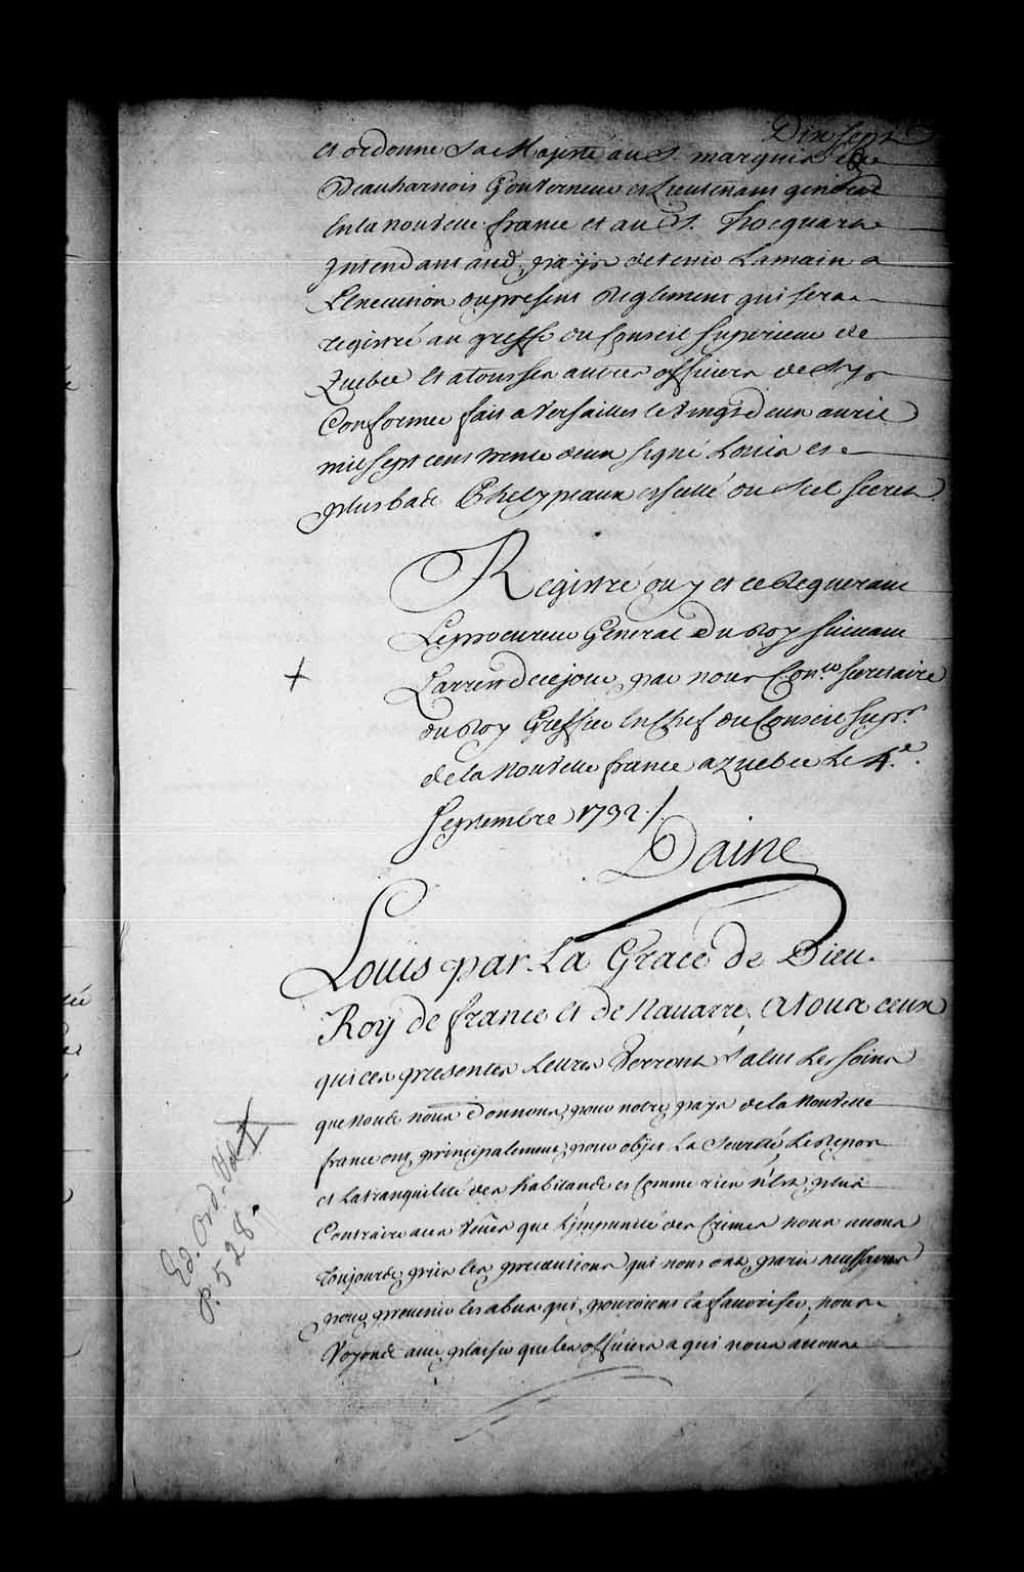 Dix Sept
et ordonne Sa Majesté au S. marquis de
Beauharnois Gouverneur et Lieutenant general
En la nouvelle france et au S. hocquart
Intendant aud. pays de tenir La main a
L'Execution du present Reglement qui sera
registré au greffe du Conseil Superieur de
Quebec et a tous les autres officiers de s'y
Conformer fait a Versailles le vingt deux avril
mil sept cent trente deux signé Louis et
plus bas Phelypeaux et scellé du scel secret

Registré ouy et ce Requerant
Le procureur General du Roy suivant
L'arrest de ce jour, par nous Con.er secretaire
du Roy Greffier En Chef du Conseil Sup.r
de la Nouvelle france a Quebec Le 4.e
Septembre 1732./.
Daine
Louis par La Grace de Dieu.
Roy de france et de Navarre, A tous ceux
qui ces presentes Lettres Verront Salut Les soins
que nous nous donnons pour notre pays de la Nouvelle
france ont principalement pour objet La Seureté Le Repos
et la tranquilité des habitants et Comme rien n'est plus
Contraire aux Vües que L'impunité des Crimes nous avons
Toujours pris les precautions qui nous ont paru necessaires
pour prevenir les abus qui pouroient la favoriser, nous
Voyons avec plaisir que les officiers a qui nous avons
Ed. Ord. Vol I
p. 528.